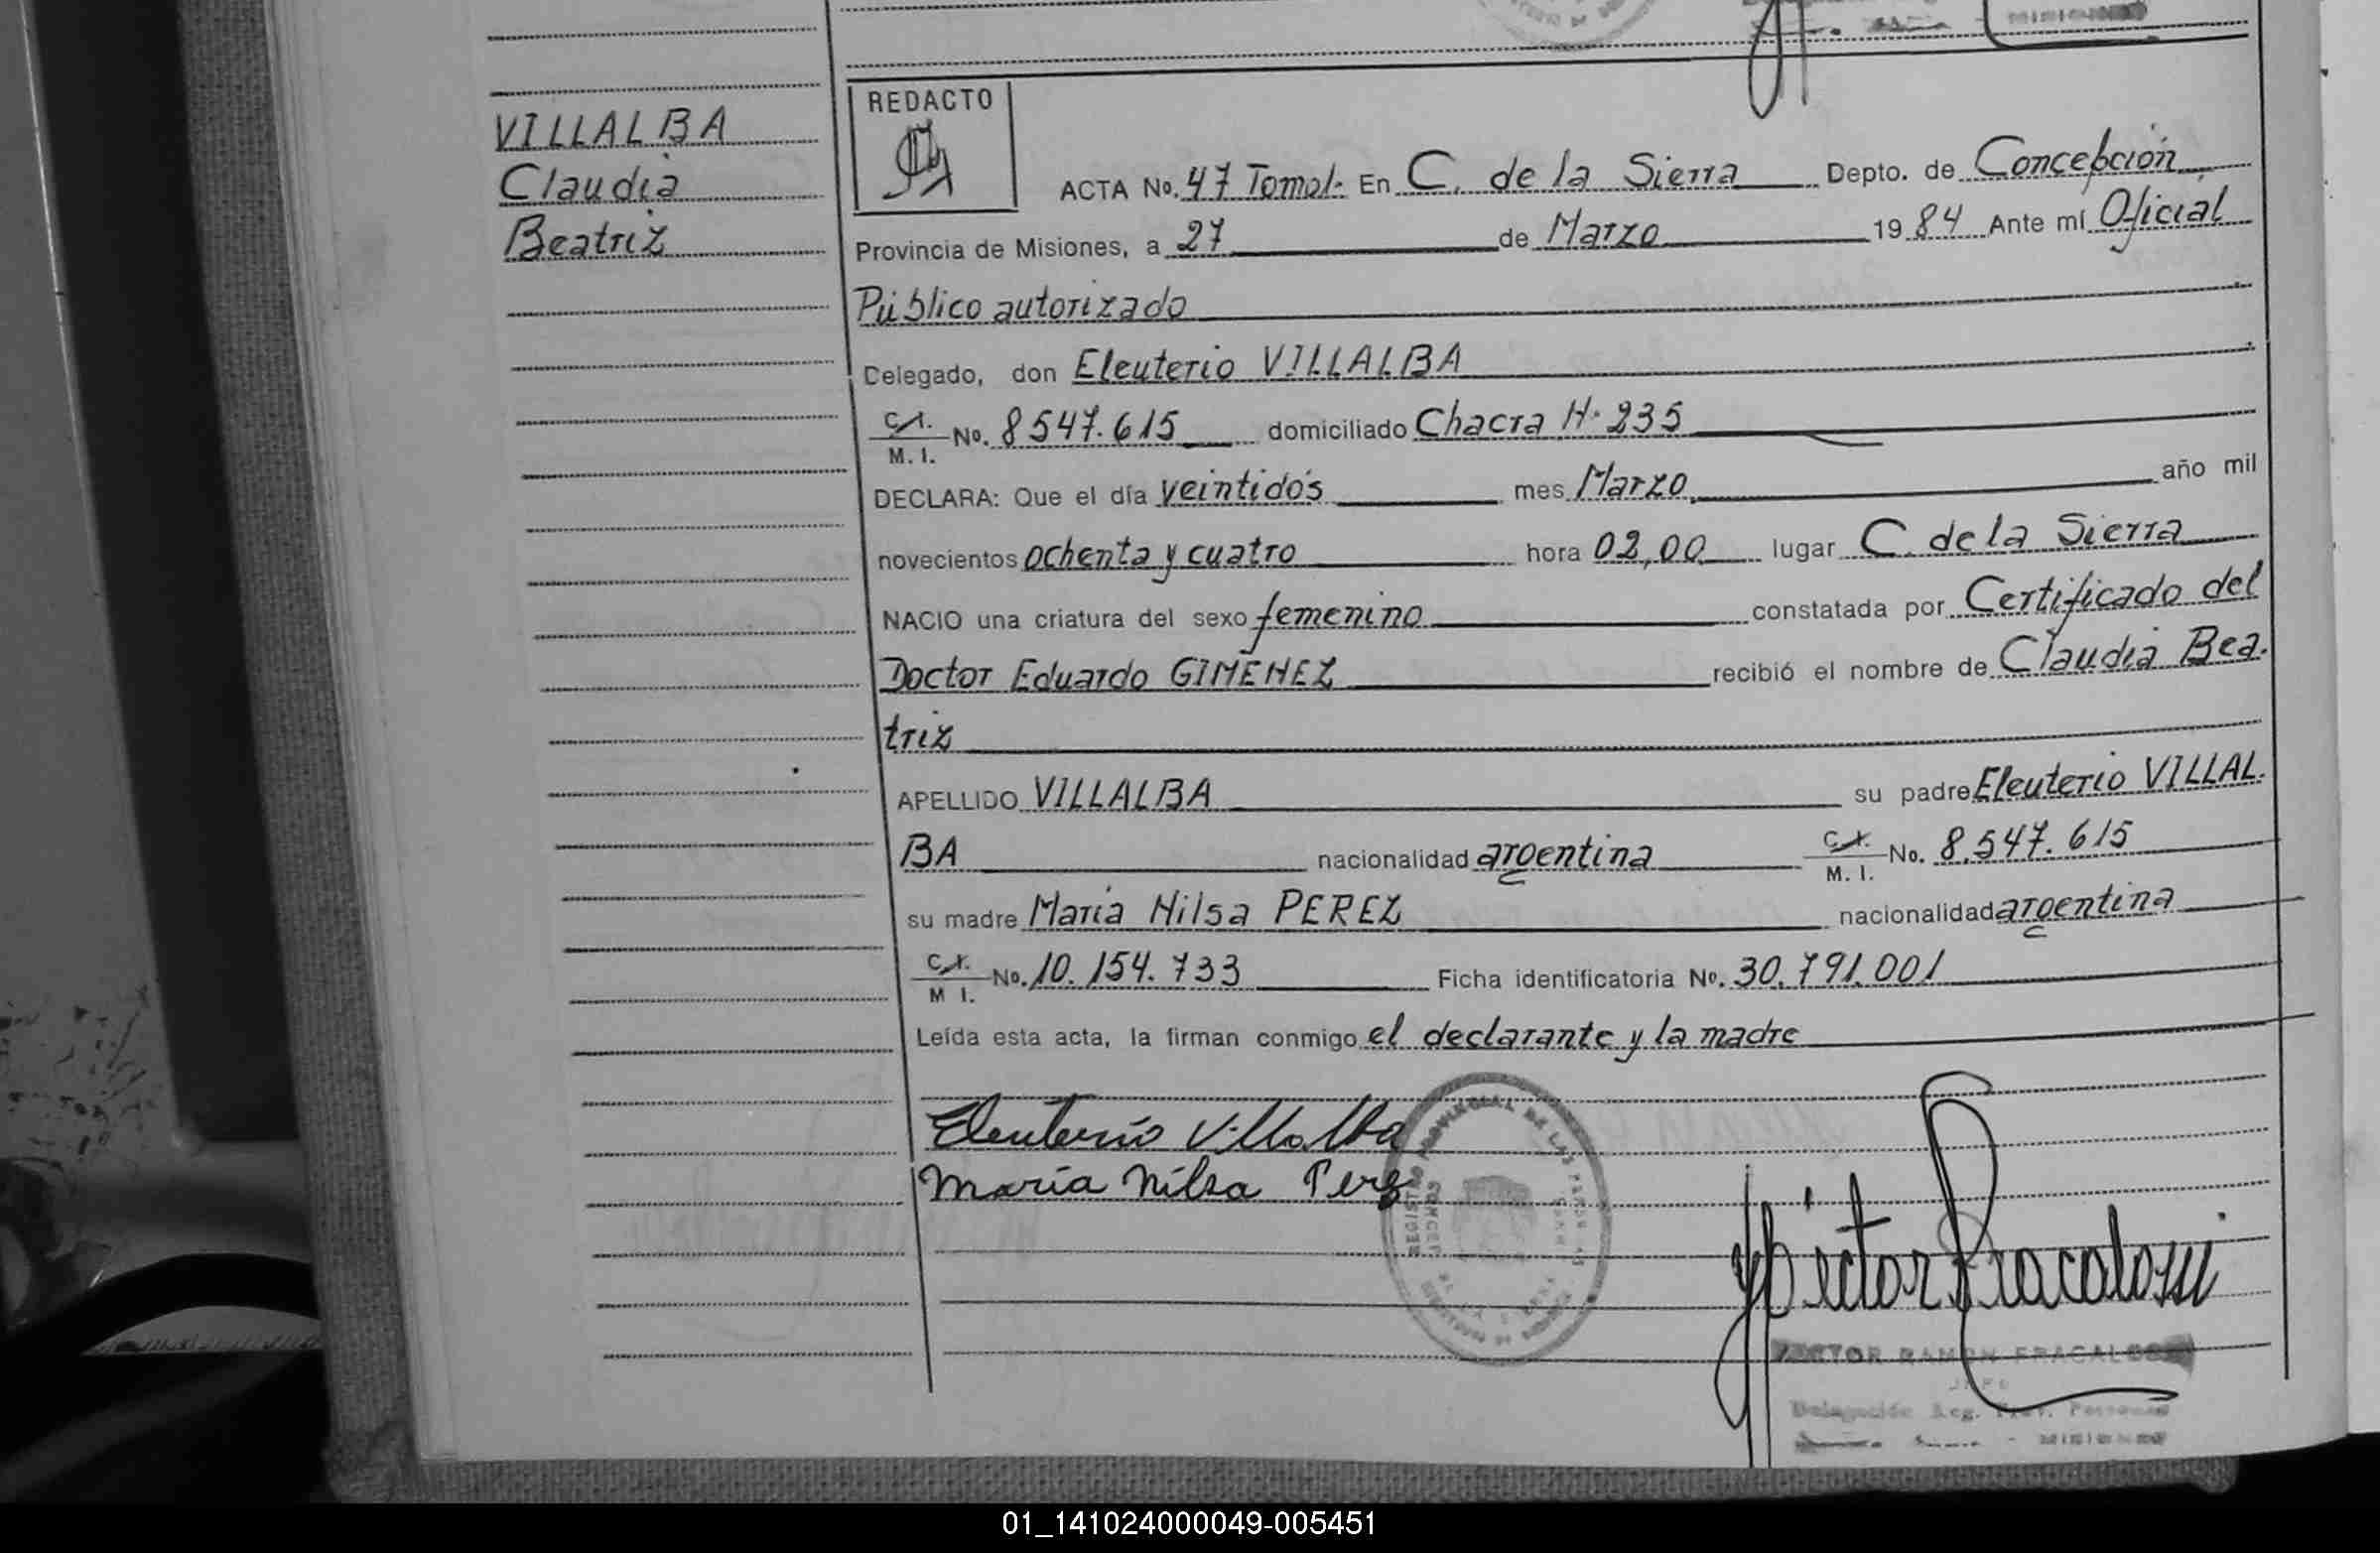 VILLALBA
Claudia
Beatriz
REDACTO
ACTA No. 47 Tomo1- En C. de la Sierra Depto. de Concepción
Provincia de Misiones, a 27 de Marzo 1984 Ante mí Oficial
Público autorizado
Delegado, don Eleuterio VILLALBA
C.I. No. 8547.615 domiciliado Chacra N. 235
M. I.
DECLARA: Que el día veintidós mes Marzo año mil
novecientos ochenta y cuatro hora 02,00 lugar C. de la Sierra
NACIO una criatura del sexo femenino constatada por Certificado del
Doctor Eduardo GIMENEZ recibió el nombre de Claudia Bea.
triz
APELLIDO VILLALBA su padre Eleuterio VILLAL.
BA nacionalidad argentina C.I. No. 8.547.615
M. I.
su madre María Nilsa PEREZ nacionalidad argentina
C.I. No. 10.154.733 Ficha identificatoria No. 30.791.001
M I.
Leída esta acta, la firman conmigo el declarante y la madre
Eleuterio Villalba
María Nilsa Perez
REGISTRO PROVINCIAL DE LAS PERSONAS
Héctor R Fracalossi
HECTOR RAMON FRACALOSSI
JEFE
Delegación Reg. Prov. Personas
MISIONES
01_141024000049-005451